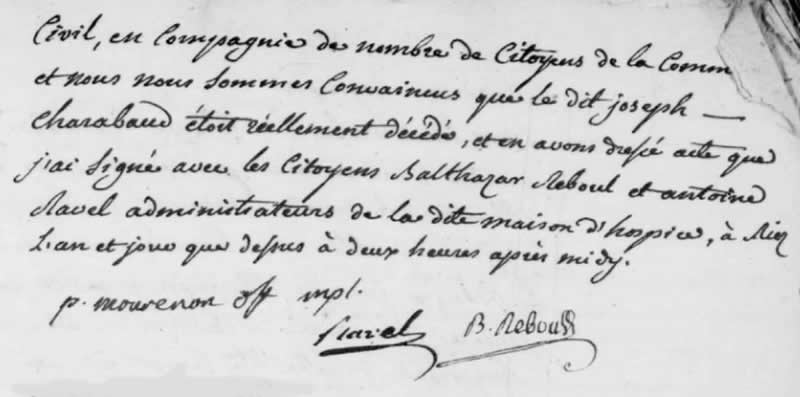 Civil, en Compagnie de nombre de Citoyens de la Comm
et nous nous sommes Convaincus que le dit joseph —
Charabaud étoit réellement décédé, et en avons dressé acte que
j'ai signé avec les Citoyens Balthazar Reboul et antoine
Ravel administrateurs de la dite maison d'hospice, à Riez
L'an et jour que dessus à deux heures après midy.
p. mourenon off mpl.
Ravel B. Reboul